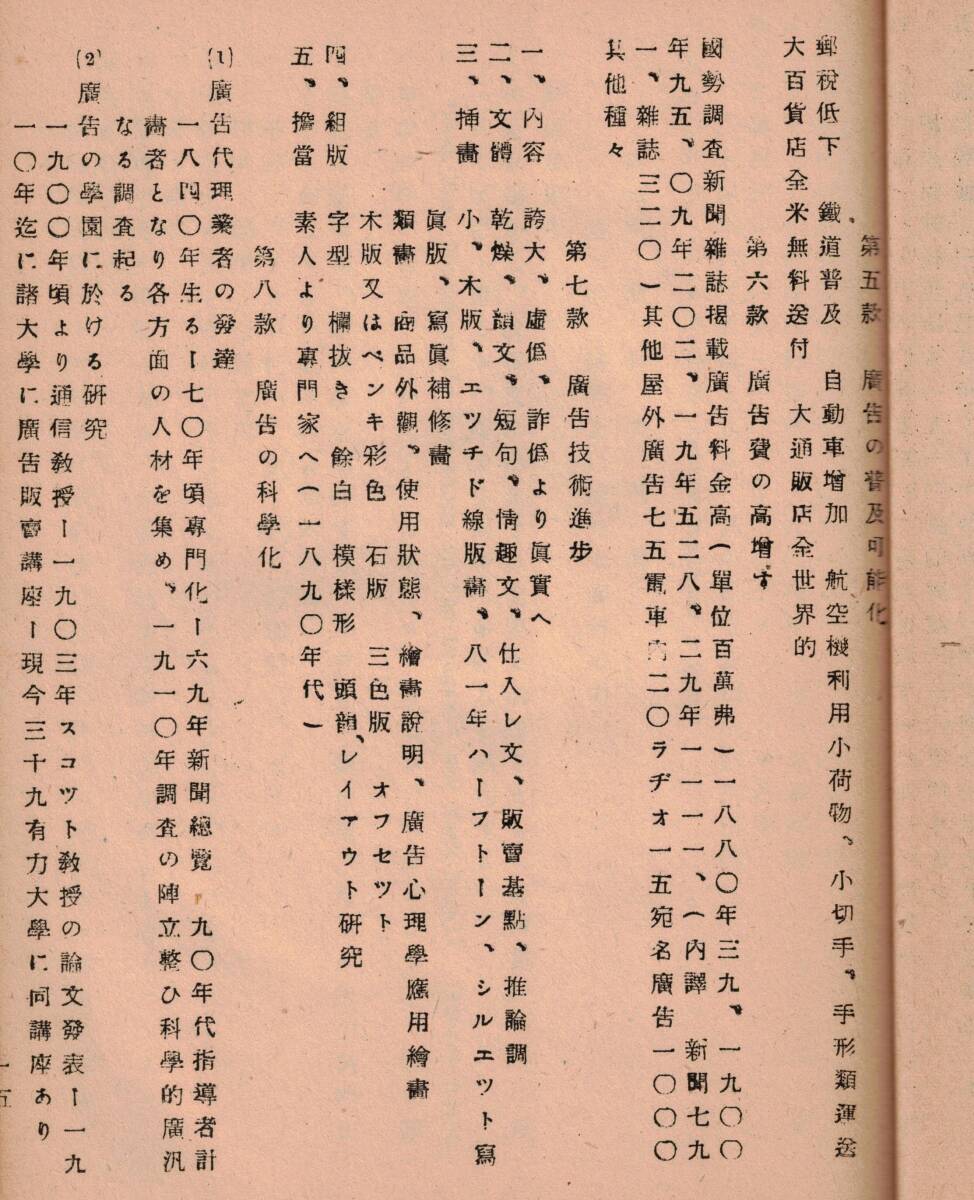 第五款　廣告の普及可能化
郵稅低下　鐵道普及　自動車增加　航空機利用小荷物、小切手、手形類運送
大百貨店全米無料送付　大通販店全世界的
第六款　廣告費の高增す
國勢調査新聞雜誌揭載廣告料金高（單位百萬弗）一八八〇年三九、一九〇〇
年九五、〇九年二〇二、一九年五二八、二九年一一一一、（內譯　新聞七九
一、雜誌三二〇）其他屋外廣告七五電車內二〇ラヂオ一五宛名廣告一〇〇〇
其他種々
第七款　廣告技術進步
一、內容　誇大、虛僞、詐僞より眞實へ
二、文體　乾燥、韻文、短句、情趣文、仕入レ文、販賣基點、推論調
三、揷畵　小、木版、エツチド線版畵、八一年ハーフトーン、シルエツト寫
眞版、寫眞補修畵
類畵　商品外觀、使用狀態、繪畵說明、廣告心理學應用繪畵
木版又はペンキ彩色　石版　三色版　オフセツト
四、組版　字型　欄拔き　餘白　模樣形　頭韻、レイアウト硏究
五、擔當　素人より專門家へ（一八九〇年代）
第八款　廣告の科學化
(1)廣告代理業者の發達
一八四〇年生るー七〇年頃專門化ー六九年新聞總覽　九〇年代指導者計
畵者となり各方面の人材を集め、一九一〇年調査の陣立整ひ科學的廣汎
なる調査起る
(2)廣告の學園に於ける硏究
一九〇〇年頃より通信敎授ー一九〇三年スコツト敎授の論文發表ー一九
一〇年迄に諸大學に廣告販賣講座ー現今三十九有力大學に同講座あり
一五